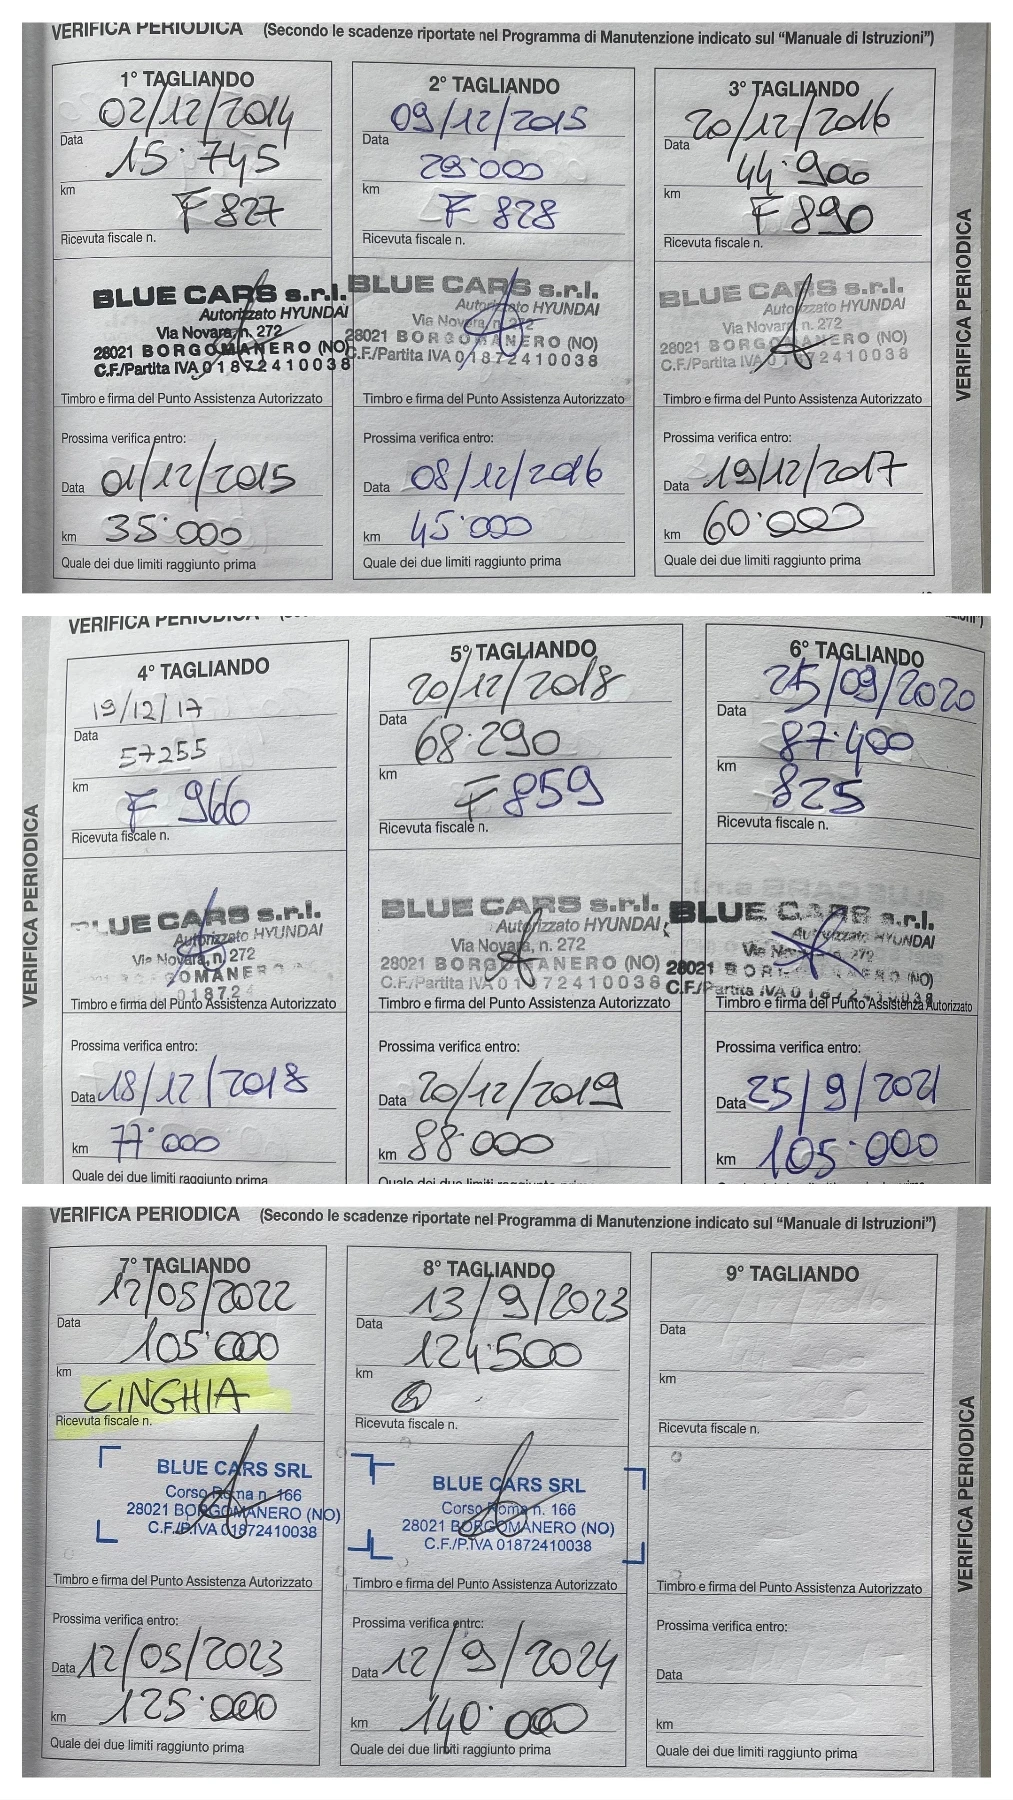 VERIFICA PERIODICA (Secondo le scadenze riportate nel Programma di Manutenzione indicato sul “Manuale di Istruzioni”)
1° TAGLIANDO
02/12/2014
Data
15.745
km
F 827
Ricevuta fiscale n.
BLUE CARS s.r.l.
Autorizzato HYUNDAI
Via Novara, n. 272
28021 BORGOMANERO (NO)
C.F./Partita IVA 01872410038
Timbro e firma del Punto Assistenza Autorizzato
Prossima verifica entro:
Data 01/12/2015
km 35.000
Quale dei due limiti raggiunto prima
2° TAGLIANDO
09/12/2015
Data
29.000
km
F 828
Ricevuta fiscale n.
BLUE CARS s.r.l.
Autorizzato HYUNDAI
Via Novara, n. 272
28021 BORGOMANERO (NO)
C.F./Partita IVA 01872410038
Timbro e firma del Punto Assistenza Autorizzato
Prossima verifica entro:
Data 08/12/2016
km 45.000
Quale dei due limiti raggiunto prima
3° TAGLIANDO
20/12/2016
Data
44.900
km
F 890
Ricevuta fiscale n.
BLUE CARS s.r.l.
Autorizzato HYUNDAI
Via Novara, n. 272
28021 BORGOMANERO (NO)
C.F./Partita IVA 01872410038
Timbro e firma del Punto Assistenza Autorizzato
Prossima verifica entro:
Data 19/12/2017
km 60.000
Quale dei due limiti raggiunto prima
VERIFICA PERIODICA
VERIFICA PERIODICA
VERIFICA PERIODICA
4° TAGLIANDO
19/12/17
Data
57255
km
F 966
Ricevuta fiscale n.
BLUE CARS s.r.l.
Autorizzato HYUNDAI
Via Novara, n. 272
OMANER
01872
Timbro e firma del Punto Assistenza Autorizzato
Prossima verifica entro:
Data 18/12/2018
km 77.000
Quale dei due limiti raggiunto prima
5° TAGLIANDO
20/12/2018
Data
68.290
km
F 859
Ricevuta fiscale n.
BLUE CARS s.r.l.
Autorizzato HYUNDAI
Via Novara, n. 272
28021 BORGOMANERO (NO)
C.F./Partita IVA 01872410038
Timbro e firma del Punto Assistenza Autorizzato
Prossima verifica entro:
Data 20/12/2019
km 88.000
Quale dei due limiti raggiunto prima
6° TAGLIANDO
25/09/2020
Data
87.400
km
825
Ricevuta fiscale n.
BLUE CARS s.r.l.
Autorizzato HYUNDAI
Via Novara, n. 272
28021 BORGOMANERO (NO)
C.F./Partita IVA 01872410038
Timbro e firma del Punto Assistenza Autorizzato
Prossima verifica entro:
Data 25/9/2021
km 105.000
VERIFICA PERIODICA (Secondo le scadenze riportate nel Programma di Manutenzione indicato sul “Manuale di Istruzioni”)
7° TAGLIANDO
12/05/2022
Data
105.000
km
CINGHIA
Ricevuta fiscale n.
BLUE CARS SRL
Corso Roma n. 166
28021 BORGOMANERO (NO)
C.F./P.IVA 01872410038
Timbro e firma del Punto Assistenza Autorizzato
Prossima verifica entro:
Data 12/05/2023
km 125.000
Quale dei due limiti raggiunto prima
8° TAGLIANDO
13/9/2023
Data
124.500
km
Ricevuta fiscale n.
BLUE CARS SRL
Corso Roma n. 166
28021 BORGOMANERO (NO)
C.F./P.IVA 01872410038
Timbro e firma del Punto Assistenza Autorizzato
Prossima verifica entro:
Data 12/9/2024
km 140.000
Quale dei due limiti raggiunto prima
9° TAGLIANDO
Data
km
Ricevuta fiscale n.
Timbro e firma del Punto Assistenza Autorizzato
Prossima verifica entro:
Data
km
Quale dei due limiti raggiunto prima
VERIFICA PERIODICA